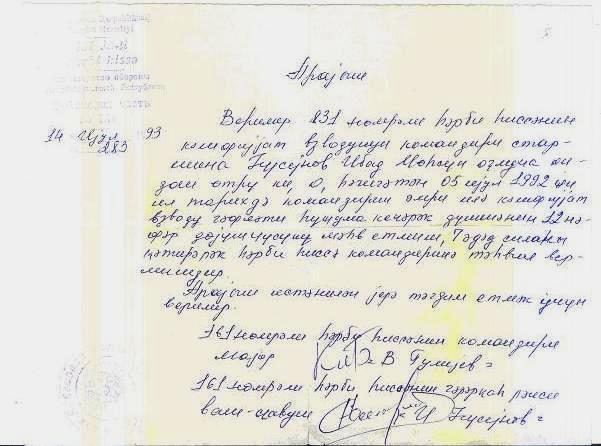 Арајыш
Верилир 831 нөмрәли һәрби һиссәнин
14 ијул 93
283
кәшфијјат взводунун командири стар-
шина Һүсејнов Ивад Мөһсүн оғлуна он-
дан өтрү ки, о, һәгигәтән 05 ијул 1992 ҹи
ил тарихдә командирин әмри илә кәшфијјат
взводу гәфләти һүҹума кечәрәк дүшмәнин 12 нә-
фәр дөјүшчүсүнү мәһв етмиш, 7 әдәд силаһы
ҝәтирәрәк һәрби һиссә командиринә тәһвил вер-
мишдир.
Арајыш истәнилән јерә тәгдим етмәк үчүн
верилир.
161 нөмрәли һәрби һиссәнин командири
мајор В Гулијев
161 нөмрәли һәрби һиссәнин гәрарҝаһ рәиси
Һүсејнов